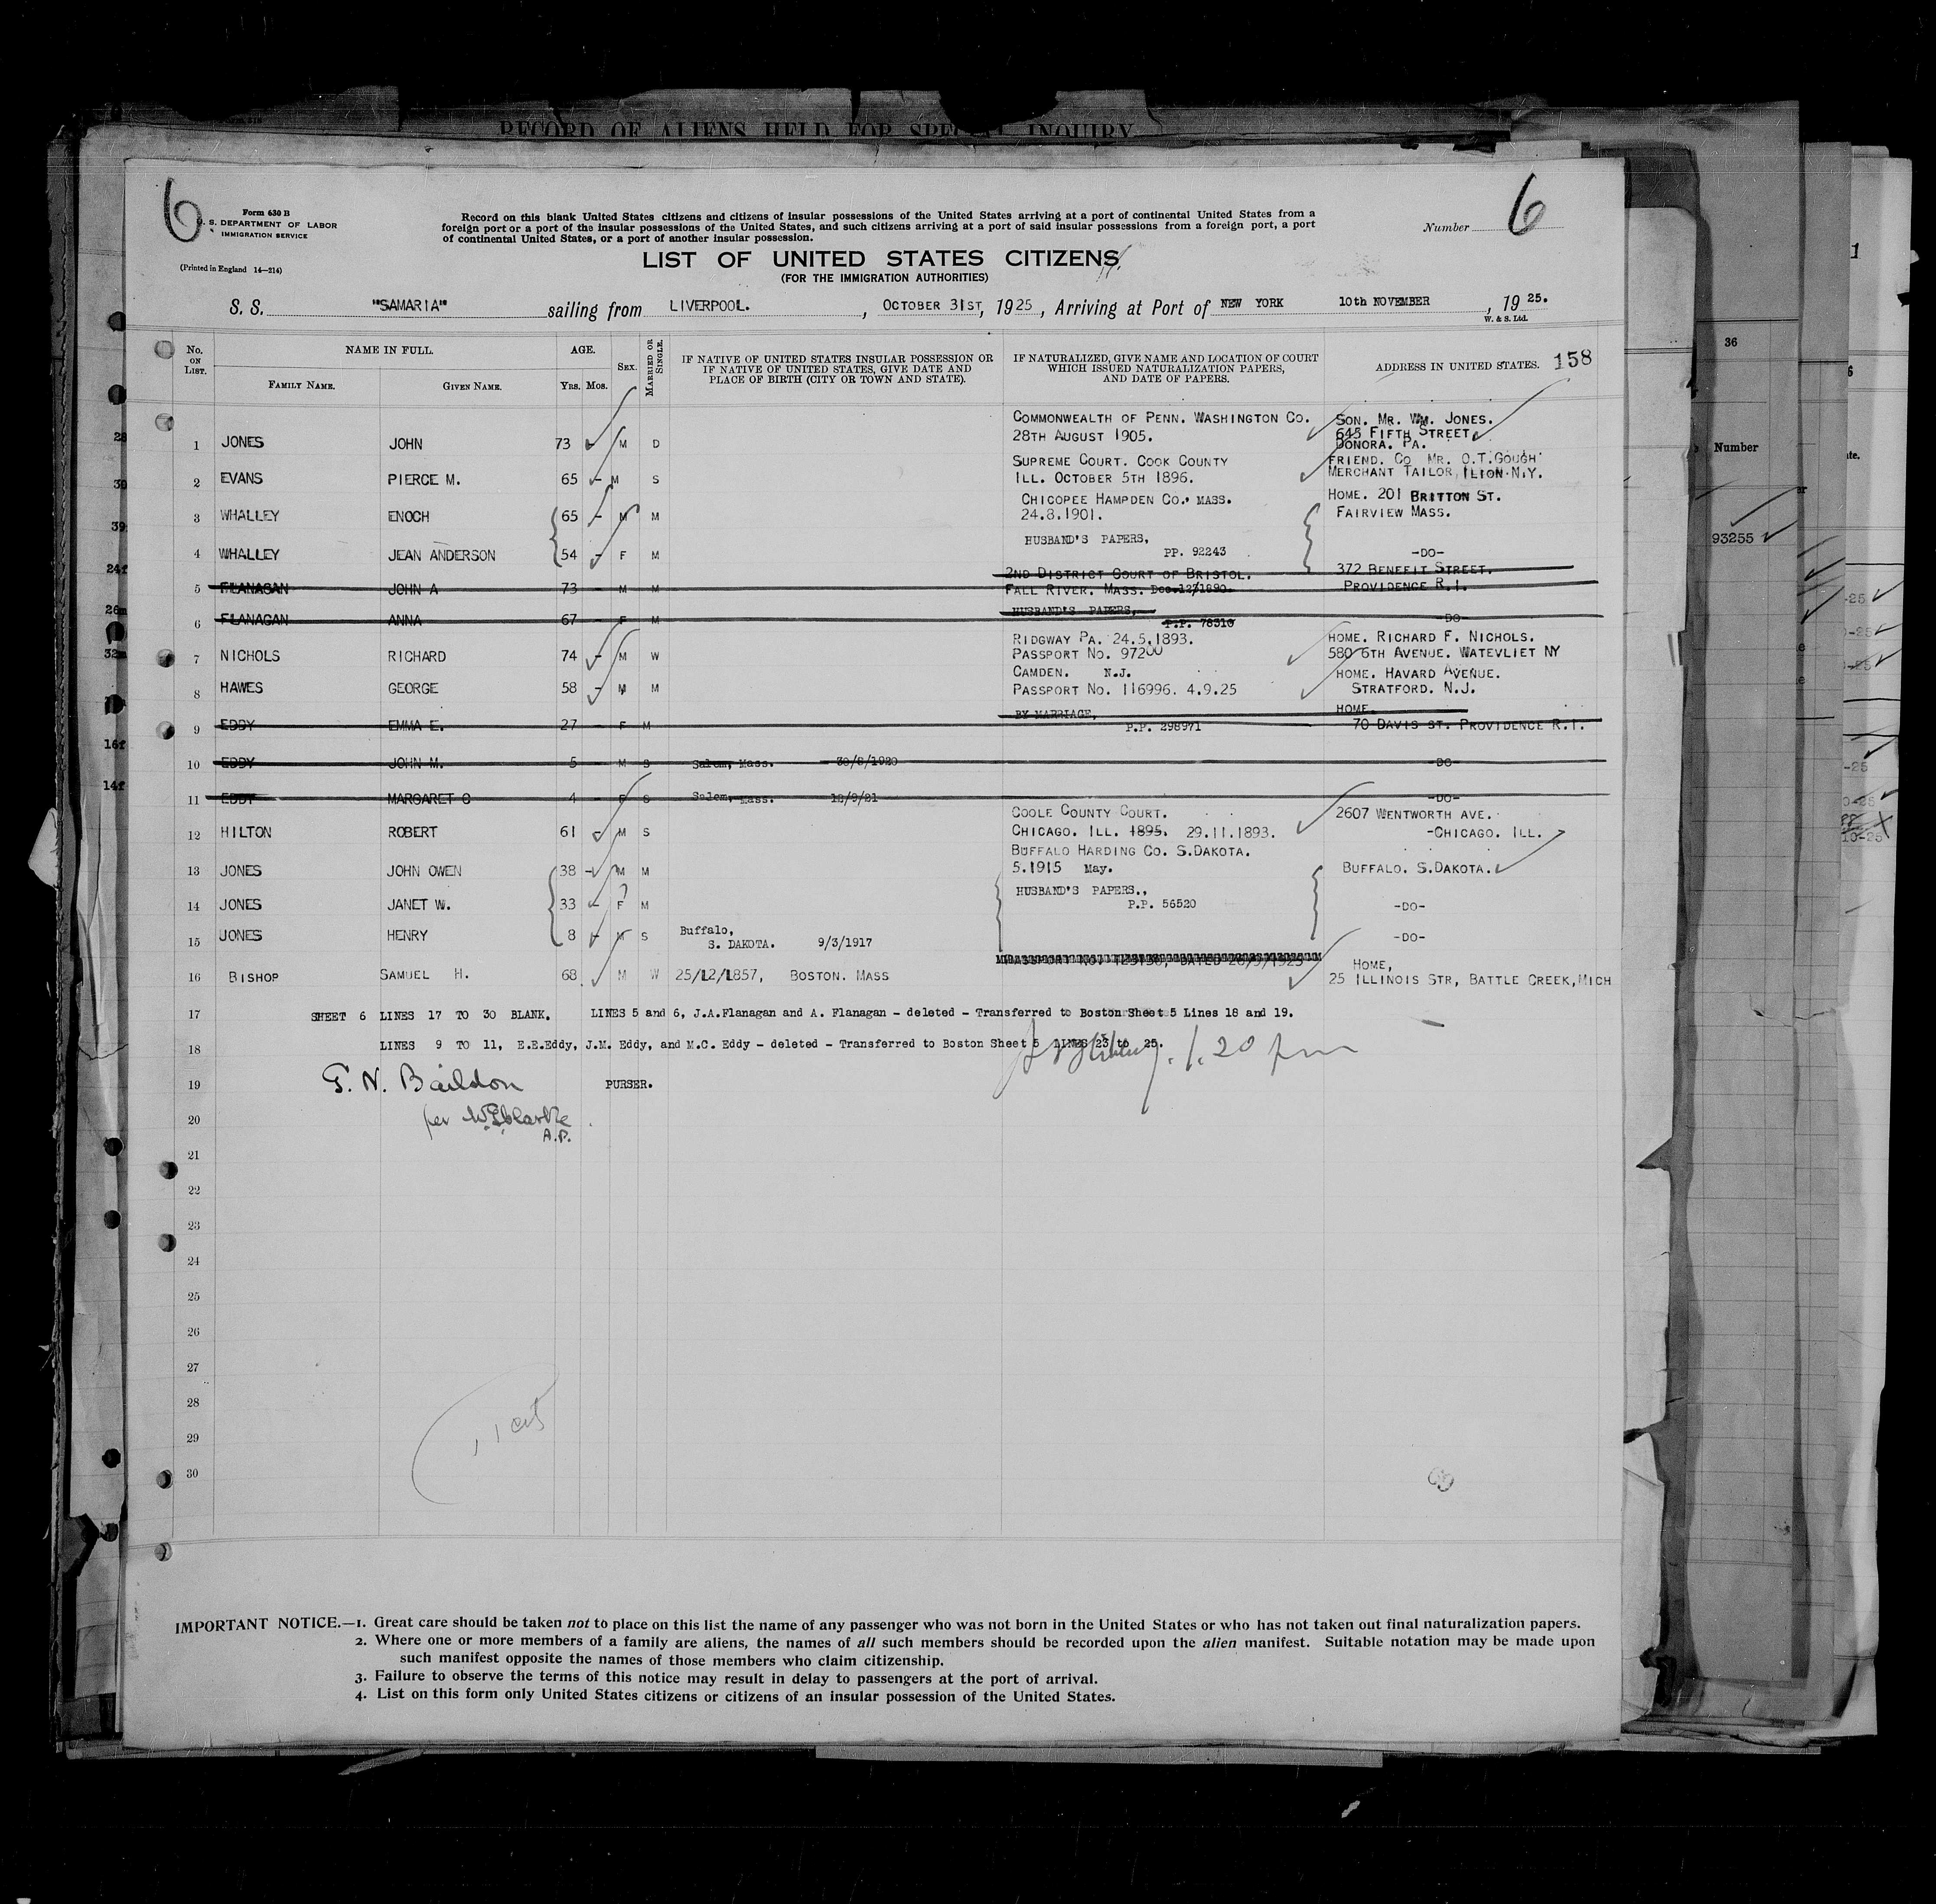 RECORD OF ALIENS HELD FOR SPECIAL INQUIRY
6
Form 630 B
U. S. DEPARTMENT OF LABOR
IMMIGRATION SERVICE
(Printed in England 14—214)
Record on this blank United States citizens and citizens of insular possessions of the United States arriving at a port of continental United States from a
foreign port or a port of the insular possessions of the United States, and such citizens arriving at a port of said insular possessions from a foreign port, a port
of continental United States, or a port of another insular possession.
Number 6
LIST OF UNITED STATES CITIZENS
(FOR THE IMMIGRATION AUTHORITIES)
S. S. "SAMARIA" sailing from LIVERPOOL. , OCTOBER 31ST, 1925 , Arriving at Port of NEW YORK 10th NOVEMBER , 19 25.
W. & S. Ltd.
No. ON LIST. NAME IN FULL. AGE. SEX. MARRIED OR SINGLE. IF NATIVE OF UNITED STATES INSULAR POSSESSION OR IF NATIVE OF UNITED STATES, GIVE DATE AND PLACE OF BIRTH (CITY OR TOWN AND STATE). IF NATURALIZED, GIVE NAME AND LOCATION OF COURT WHICH ISSUED NATURALIZATION PAPERS, AND DATE OF PAPERS. ADDRESS IN UNITED STATES. 158
FAMILY NAME. GIVEN NAME. Yrs. Mos.
COMMONWEALTH OF PENN. WASHINGTON CO. SON. MR. WM. JONES.
1 JONES JOHN 73 - M D 28TH AUGUST 1905. 645 FIFTH STREET
DONORA. PA.
SUPREME COURT. COOK COUNTY FRIEND. CO MR. O.T.GOUGH
2 EVANS PIERCE M. 65 - M S ILL. OCTOBER 5TH 1896. MERCHANT TAILOR, ILION.N.Y.
CHICOPEE HAMPDEN CO. MASS. HOME. 201 BRITTON ST.
3 WHALLEY ENOCH 65 - M M 24.8.1901. FAIRVIEW MASS.
HUSBAND'S PAPERS,
4 WHALLEY JEAN ANDERSON 54 - F M PP. 92243 -DO-
2ND DISTRICT COURT OF BRISTOL. 372 BENEFIT STREET.
5 FLANAGAN JOHN A 73 - M M FALL RIVER. MASS. Dec.12/1890. PROVIDENCE R.I.
HUSBAND'S PAPERS,
6 FLANAGAN ANNA 67 - F M P.P. 78310 -DO-
RIDGWAY PA. 24.5.1893. HOME. RICHARD F. NICHOLS.
7 NICHOLS RICHARD 74 - M W PASSPORT NO. 97200 580 6TH AVENUE. WATEVLIET NY
CAMDEN. N.J. HOME. HAVARD AVENUE.
8 HAWES GEORGE 58 - M M PASSPORT NO. 116996. 4.9.25 STRATFORD. N.J.
BY MARRIAGE, HOME
9 EDDY EMMA E. 27 - F M P.P. 298971 70 DAVIS ST. PROVIDENCE R.I.
10 EDDY JOHN M. 5 - M S Salem, Mass. 30/8/1920 -DO-
11 EDDY MARGARET C 4 - F S Salem, Mass. 12/9/21 -DO-
COOLE COUNTY COURT. 2607 WENTWORTH AVE.
12 HILTON ROBERT 61 - M S CHICAGO. ILL. 1895. 29.11.1893. -CHICAGO. ILL.
BUFFALO HARDING CO. S.DAKOTA.
13 JONES JOHN OWEN 38 - M M 5.1915 May. BUFFALO. S.DAKOTA.
HUSBAND'S PAPERS.,
14 JONES JANET W. 33 - F M P.P. 56520 -DO-
Buffalo,
15 JONES HENRY 8 - M S S. DAKOTA. 9/3/1917 -DO-
HOME,
16 BISHOP SAMUEL H. 68. M W 25/12/1857, BOSTON. MASS 25 ILLINOIS STR, BATTLE CREEK,MICH
17 SHEET 6 LINES 17 TO 30 BLANK. LINES 5 and 6, J.A.Flanagan and A. Flanagan - deleted - Transferred to Boston Sheet 5 Lines 18 and 19.
18 LINES 9 TO 11, E.E.Eddy, J.M. Eddy, and M.C. Eddy - deleted - Transferred to Boston Sheet 5 LINES 23 to 25.
1.20 pm
19 G. N. Baildon PURSER.
20 per
A.P.
21
22
23
24
25
26
27
28
29
30
IMPORTANT NOTICE.—1. Great care should be taken not to place on this list the name of any passenger who was not born in the United States or who has not taken out final naturalization papers.
2. Where one or more members of a family are aliens, the names of all such members should be recorded upon the alien manifest. Suitable notation may be made upon
such manifest opposite the names of those members who claim citizenship.
3. Failure to observe the terms of this notice may result in delay to passengers at the port of arrival.
4. List on this form only United States citizens or citizens of an insular possession of the United States.
36
Number
93255